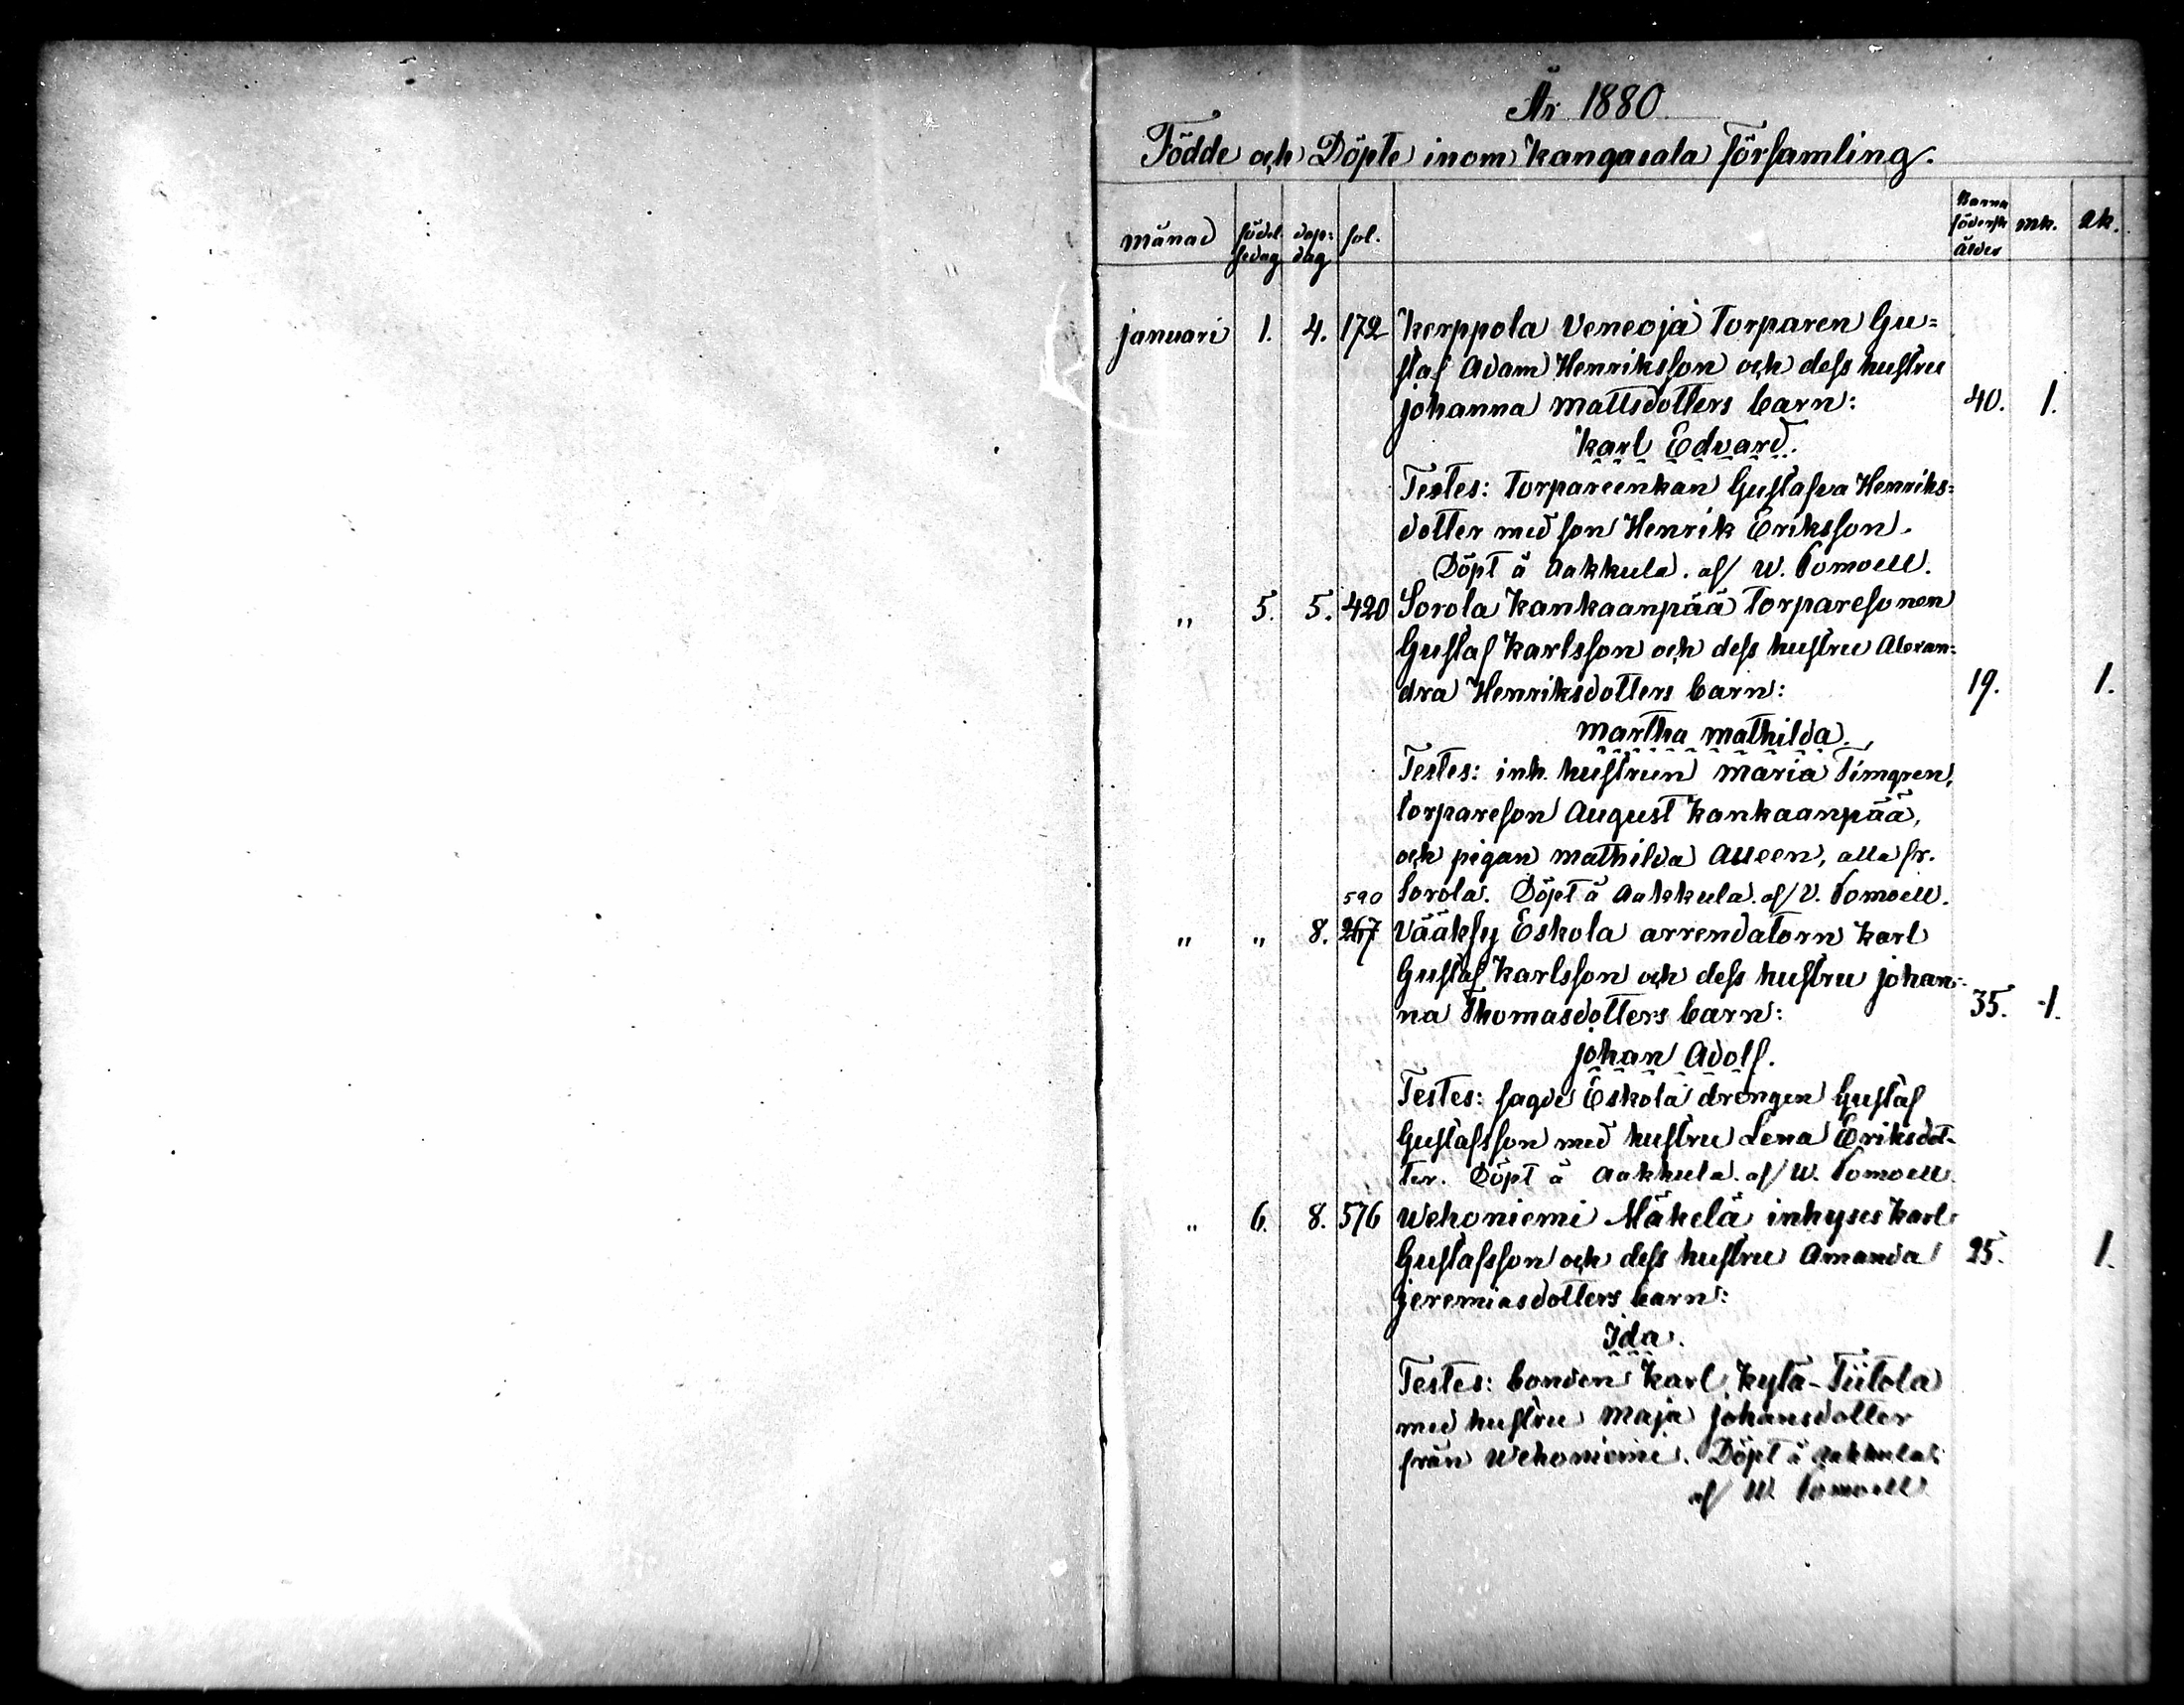 År 1880
Födde och Döpte inom Kangasala församling.
månad födel- dop- fol. Barna mk. qk.
sedag dag födersk
ålder
januari 1. 4. 172 Kerppola Veneoja Torparen Gu=
staf Adam Henriksson och dess hustru
johanna Mattsdotters barn: 40. 1.
Karl Edvard.
Testes: Torpareenkan Gustafva Henriks=
dotter med son Henrik Eriksson.
Döpt å Aakkula. af W. Pomoell.
" 5. 5. 420 Sorola Kankaanpää Torparesonen
Gustaf Karlsson och dess hustru Alexan=
dra Henriksdotters barn: 19. 1.
Martha Mathilda.
Testes: inh. hustrun Maria Timgren,
torpareson August Kankaanpää,
och pigan Mathilda Alleen, alla fr.
590 Sorola. Döpt å Aakkula. af V. Pomoell.
" " 8. 267 Vääksy Eskola arrendatorn Karl
Gustaf Karlsson och dess hustru johan=
na Thomasdotters barn: 35. 1.
johan Adolf.
Testes: sagde Eskola drengen Gustaf
Gustafsson med hustru Lena Eriksdot-
ter. Döpt å Aakkula. af W. Pomoell
" 6. 8. 576 Wehoniemi Mäkelä inhyses Karl
Gustafsson och dess hustru Amanda 25. 1.
jeremiasdotters barn:
Ida.
Testes: bonden Karl Kylä-Tiitola
med hustru Maja johansdotter
från Wehoniemi. Döpt å Aakkula.
af W. Pomoell